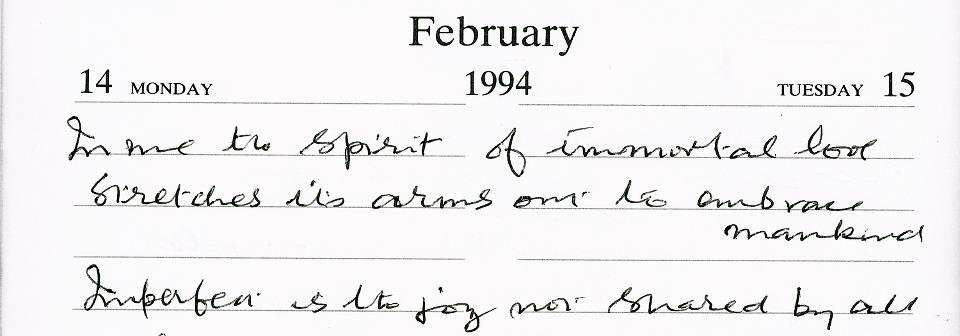 February
14 MONDAY 1994 TUESDAY 15
In me the spirit of immortal love
stretches its arms out to embrace
mankind
Imperfect is the joy not shared by all